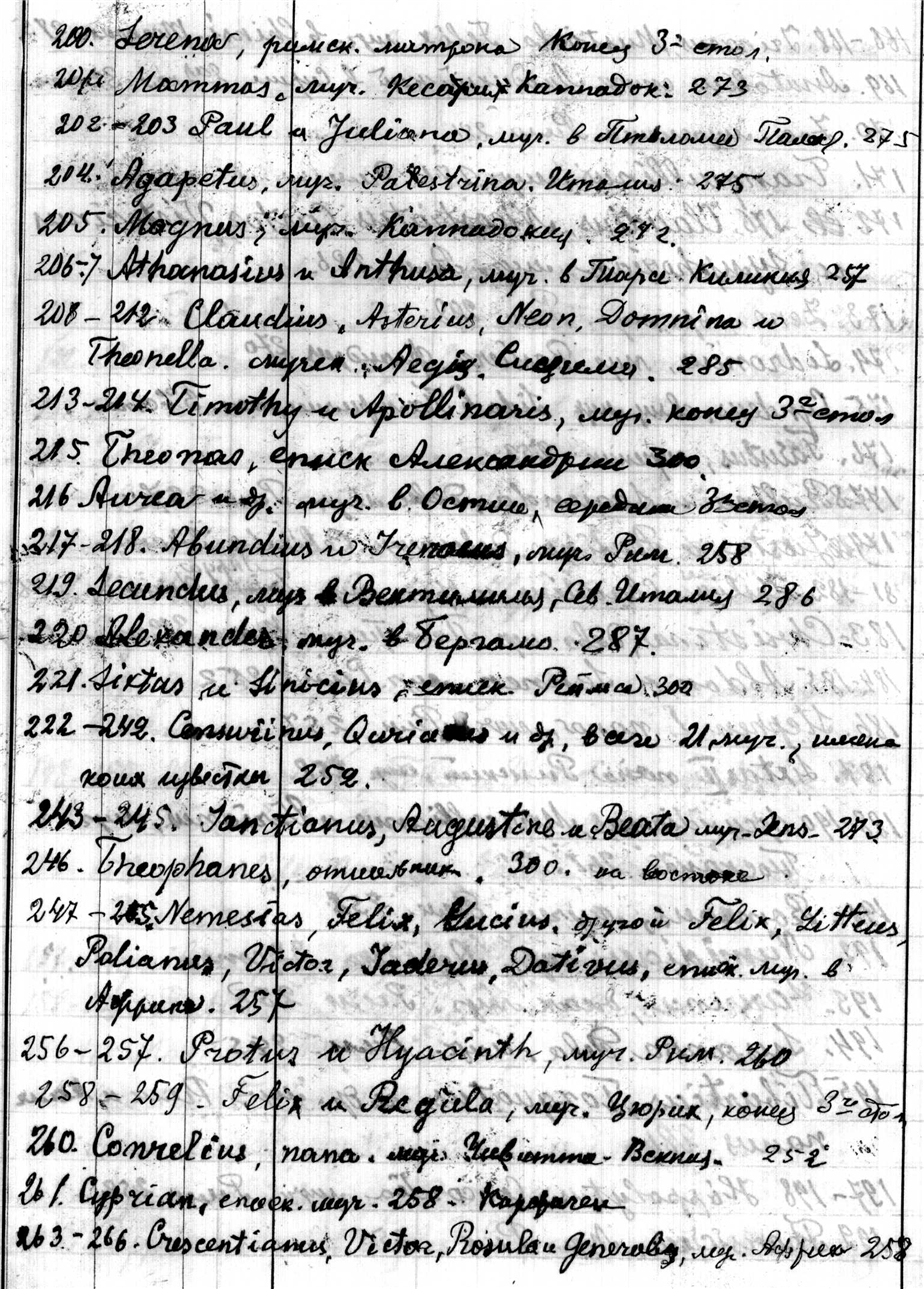 200. Serena, римск. матрона Конец 3го стол.
201. Mammas, муч. Кесария Каппадок. 273
202-203 Paul и Juliana, муч. в Птоломеи Палест. 275
204. Agapetus, муч. Palestrina. Италия 275
205. Magnus, муч. Каппадокия. 272.
206-7 Athanasius и Anthusa, муч. в Тарсе Киликия 257
208-212. Claudius, Asterius, Neon, Domnina и
Theonella. мучен., Aegea. 285
213-214. Timothy и Apollinaris, муч. конец 3го стол
215. Theonas, еписк Александрии 300.
216 Aurea и др. муч. в Остии, середина 3го стол
217-218. Abundius и Irenaeus, муч. Рим. 258
219. Secundus, муч в Вентимилья, Св. Италия 286
220 Alexander муч. в Бергамо. 287.
221. Sixtus и Sinicius, еписк. Реймса 300
222-242. Censurinus, и др, всего 21 муч., имена
коих известны 252.
243-245. Sanctianus, Augustine и Beata муч-Sens- 273
246. Theophanes, отшельник. 300. на востоке
247-255. Nemesias, Felix, Lucius. другой Felix, Litteus,
Polianus, Victor, Jaderus, Dativus, еписк. муч. в
Африке. 257
256-257. Protus и Hyacinth, муч. Рим. 260
258-259. Felix и Regula, муч. Цюрих, конец 3го стол
260. Conrelius, папа. муч. 252
261. Cyprian, еписк. муч. 258- Карфаген
263-266. Crescentianus, Victor, Rosula и Generalis, муч. Африка 258